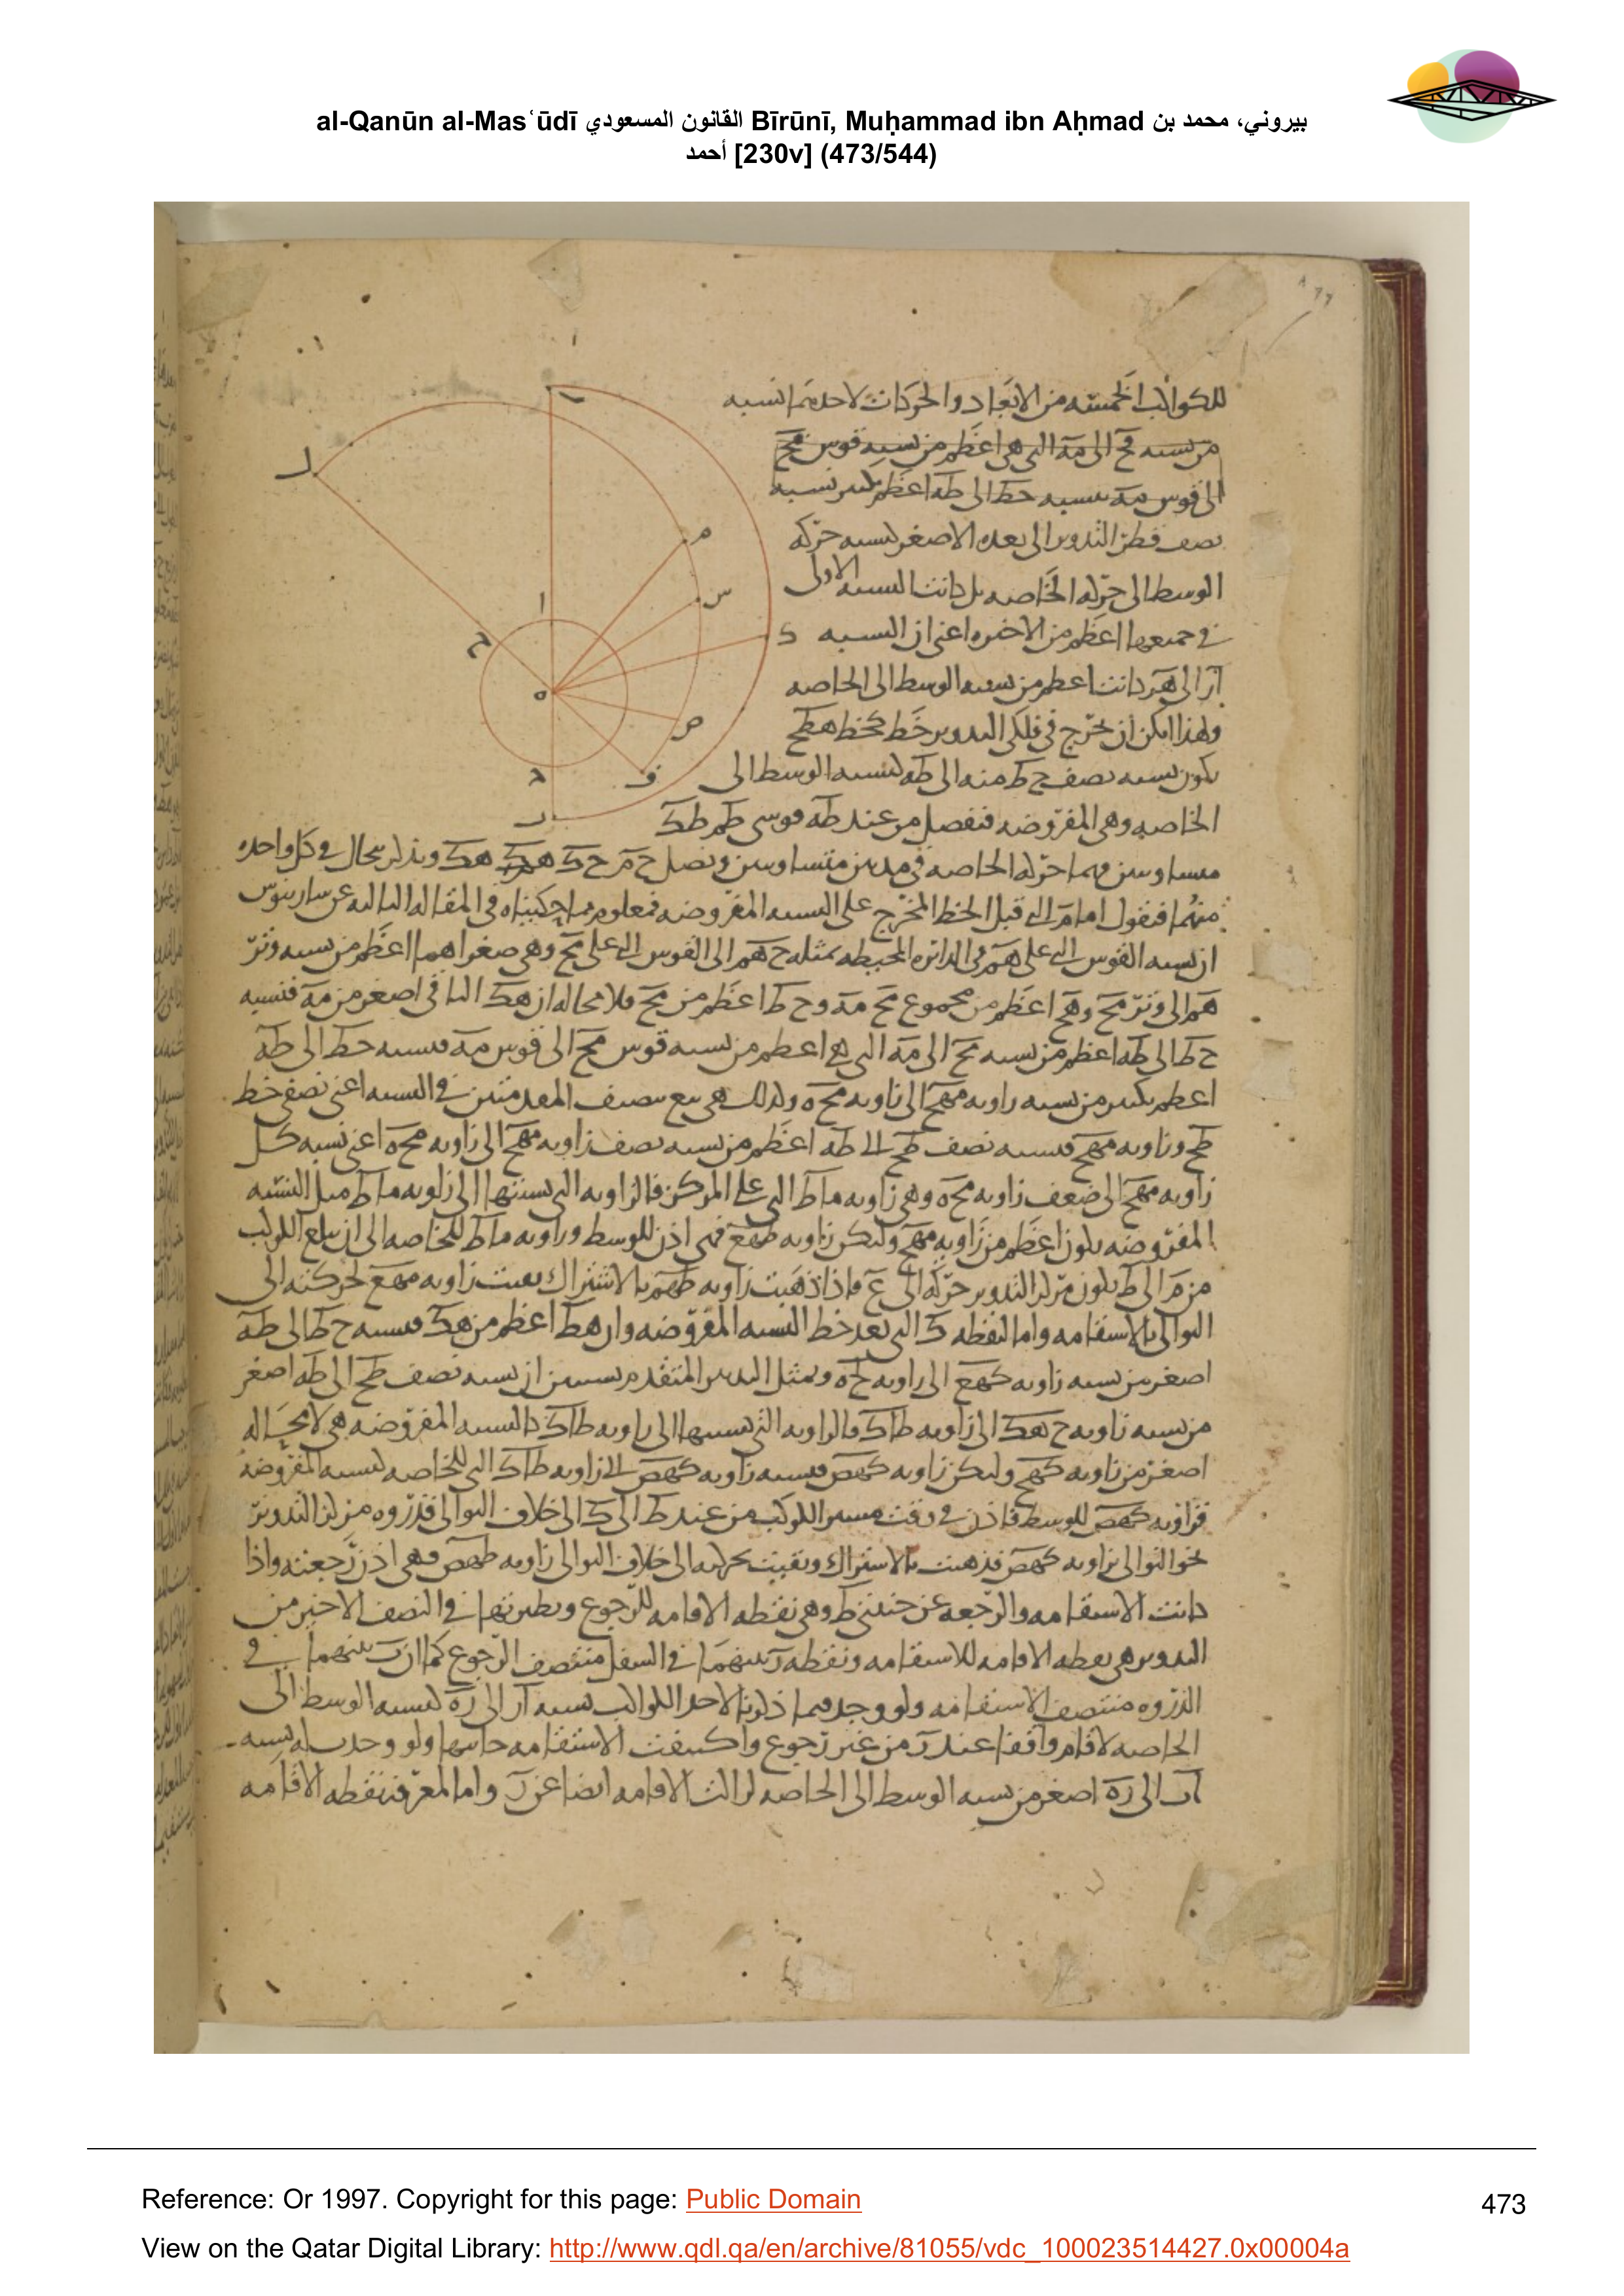 al-Qanūn al-Masʿūdī القانون المسعودي Bīrūnī, Muḥammad ibn Aḥmad بيروني، محمد بن
أحمد [230v] (473/544)
للكواكب الخمسه من الابعاد والحركات لاحدهما نسبه
من نسبه مح الى مه التي هي اعظم من نسبه قوس مح
الى قوس مه نسبه حط الى طه اعظم نسبه
نصف قطر التدوير الى بعده الاصغر كنسبه حركه
الوسط الى حركه الخاصه بل كانت النسبه الاولى
في جميعها اعظم من الاخيره اعني ان النسبه
ار الى هر كانت اعظم من نسبه الوسط الى الخاصه
ولهذا امكن ان يخرج في فلكي التدوير خط كخط هطح
يكون نسبه نصف ح ط منه الى طه كنسبه الوسط الى
الخاصه وهي المفروضه فنفصل من عند طه قوسي طم طك
متساويين فيهما حركه الخاصه في مدتين متساويتين ونصل ح م ح ك هم هك وبذلك بحال في كل واحده
منهما فنقول اما م التي قبل الخط المخرج على النسبه المفروضه فمعلوم مما حكيناه في المقاله الثالثه عن سارينوس
ان نسبه القوس التي على هم في الدائره المحيطه بمثلث ح هم الى القوس التي على مح وهي صغراهما اعظم من نسبه وتر
هم الى وتر مح وهح اعظم من مجموع مح مه وح ط اعظم من مح فلا محاله ان هط الباقي اصغر من مه فنسبه
ح ط الى طه اعظم من نسبه مح الى مه التي هي اعظم من نسبه قوس مح الى قوس مه فنسبه حط الى طه
اعظم بكثير من نسبه زاويه مهح الى زاويه محه وكذلك هي مع نصف المقدمتين في النسبه اعني نصفي خط
طح وزاويه مهح فنسبه نصف طح الى طه اعظم من نسبه نصف زاويه مهح الى زاويه محه اعني نسبه كل
زاويه مهح الى ضعف زاويه محه وهي زاويه ماط التي على المركز فالزاويه التي نسبتها الى زاويه ماط مثل النسبه
المفروضه يكون اعظم من زاويه مهح ولتكن زاويه طهع فهي اذن للوسط وزاويه ماط للخاصه الى ان يبلغ الكوكب
من م الى ط يكون مركز التدوير حركه الى ع فاذا ذهبت زاويه طهم بالاشتراك بقيت زاويه مهع لحركته الى
التوالي بالاستقامه واما النقطه ك التي بعد خط النسبه المفروضه وان هط اعظم من هك فنسبه ح ط الى طه
اصغر من نسبه زاويه كهع الى زاويه كحه وبمثل التدبير المتقدم يتبين ان نسبه نصف طح الى طه اصغر
من نسبه زاويه ح هك الى زاويه طاك فالزاويه التي نسبتها الى زاويه طاك كالنسبه المفروضه هي لا محاله
اصغر من زاويه كهح ولتكن زاويه كهص فنسبه زاويه كهص الى زاويه طاك التي للخاصه كنسبه المفروضه
فزاويه كهص للوسط فاذن في وقت مسير الكوكب من عند ط الى ك الى خلاف التوالي قدروه مركز التدوير
نحو التوالي بزاويه كهص فذهبت بالاشتراك وبقيت بحركته الى خلاف التوالي زاويه طهص فهي اذن رجعته واذا
كانت الاستقامه والرجعه عن جنبتي ط وهي نقطه الاقامه للرجوع ونظيرتها في النصف الاخير من
التدوير هي نقطه الاقامه للاستقامه ونقطه ر بينهما في السفل منتصف الرجوع كما ان ب بينهما في
الذروه منتصف الاستقامه ولو وجد فيما ذكرنا لاحد الكواكب نسبه ار الى ره كنسبه الوسط الى
الخاصه لاقام واقفا عند ر من غير رجوع واكتنفت الاستقامه جانبيها ولو وجدت له نسبه
ار الى ره اصغر من نسبه الوسط الى الخاصه لزالت الاقامه ايضا عن ر واما المعرفه نقطه الاقامه
Reference: Or 1997. Copyright for this page: Public Domain
473
View on the Qatar Digital Library: http://www.qdl.qa/en/archive/81055/vdc_100023514427.0x00004a